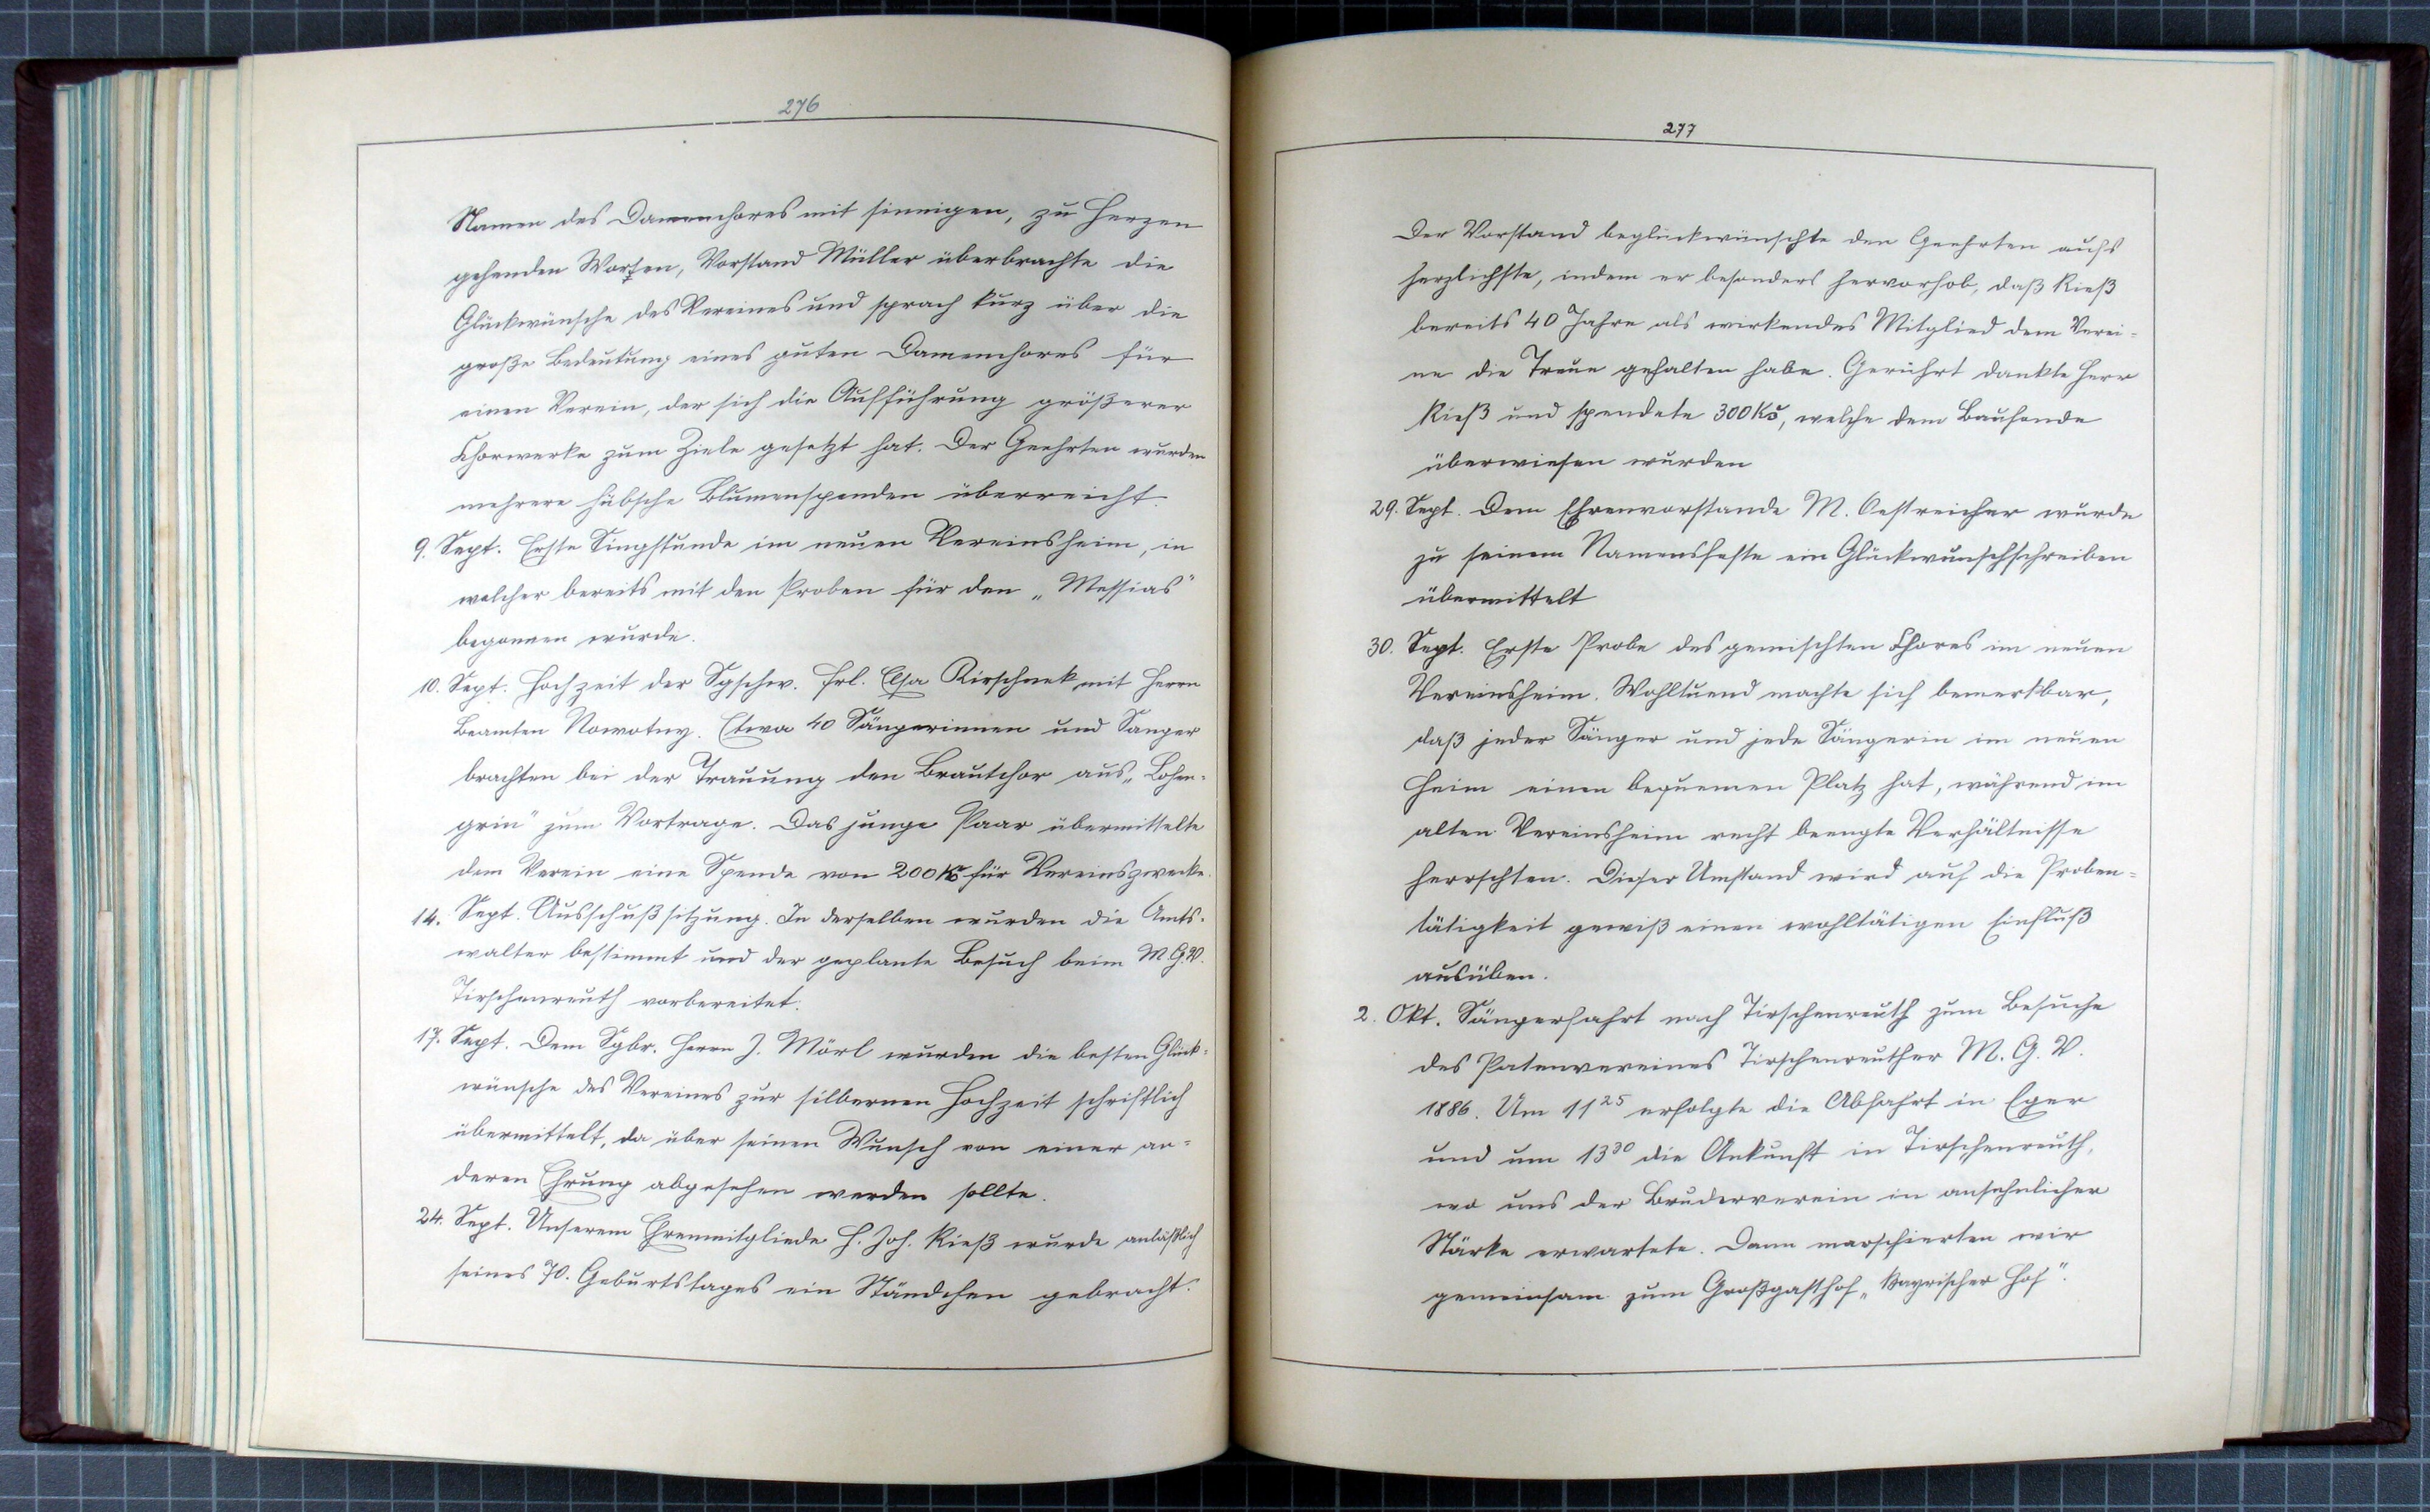 276
Namen des Damenchores mit sinnigen, zu Herzen
gehenden Worten, Vorstand Müller überbrachte die
Glückwünsche des Vereines und sprach kurz über die
große Bedeutung eines guten Damenchores für
einen Verein, der sich die Aufführung größerer
Chorwerke zum Ziele gesetzt hat. Der Geehrten wurden
mehrere hübsche Blumenspenden überreicht.
9. Sept. Erste Singstunde im neuen Vereinsheim, in
welcher bereits mit den Proben für den „Messias"
begonnen wurde.
10. Sept. Hochzeit der Sgschw. Frl. Elsa Kirschnek mit Herrn
Beamten Nowotny. Etwa 40 Sängerinnen und Sänger
brachten bei der Trauung den Brautchor aus „Lohen-
grin" zum Vortrage. Das junge Paar übermittelte
dem Verein eine Spende von 200 Kč für Vereinszwecke.
14. Sept. Ausschußsitzung. In derselben wurden die Amts-
walter bestimmt und der geplante Besuch beim M.G.V.
Tirschenreuth vorbereitet.
17. Sept. Dem Sgbr. Herrn J. Mörl wurden die besten Glück-
wünsche des Vereines zur silbernen Hochzeit schriftlich
übermittelt, da über seinen Wunsch von einer an-
deren Ehrung abgesehen werden sollte.
24. Sept. Unserem Ehrenmitgliede H. Joh. Rieß wurde anläßlich
seines 70. Geburtstages ein Ständchen gebracht.
277
Der Vorstand beglückwünschte den Geehrten aufs
herzlichste, indem er besonders hervorhob, daß Rieß
bereits 40 Jahre als wirkendes Mitglied dem Verei-
ne die Treue gehalten habe. Gerührt dankte Herr
Rieß und spendete 300 Kč, welche dem Baufonde
überwiesen wurden
29. Sept. Dem Ehrenvorstande M. Oestreicher wurde
zu seinem Namensfeste ein Glückwunschschreiben
übermittelt
30. Sept. Erste Probe des gemischten Chores im neuen
Vereinsheim. Wohltuend machte sich bemerkbar,
daß jeder Sänger und jede Sängerin im neuen
Heim einen bequemen Platz hat, während im
alten Vereinsheim recht beengte Verhältnisse
herrschten. Dieser Umstand wird auf die Proben-
tätigkeit gewiß einen wohltätigen Einfluß
ausüben.
2. Okt. Sängerfahrt nach Tirschenreuth zum Besuche
des Patenvereines Tirschenreuther M. G. V.
1886. Um 11²⁵ erfolgte die Abfahrt in Eger
und um 13³⁰ die Ankunft in Tirschenreuth,
wo uns der Bruderverein in ansehnlicher
Stärke erwartete. Dann marschierten wir
gemeinsam zum Großgasthof „Bayrischer Hof".